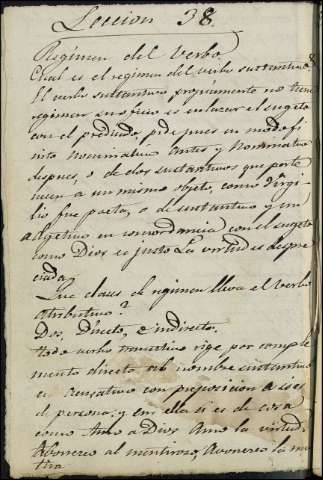 Leccion 38.
Regimen del Verbo.
Cual es el regimen del verbo sustantivo?
El verbo sustantivo propiamente no tiene
regimen su oficio es enlazar el sugeto
con el predicado, pide pues en modo fi
nito Nominativo antes y Nominativo
despues, o de dos sustantivos que perte
necen a un mismo objeto, como Virgi-
lio fue poeta, o de sustantivo y un
adgetivo en concordancia con el sugeto
como Dios es justo La virtud es despre
ciada.
Que clases de regimen lleva el Verbo
atributivo?
Dos, Directo, e indirecto.
todo verbo transitivo rige por comple
mento directo al nombre sustantivo
en acusativo con preposicion a si es
de persona; y sin ella si es de cosa
como Amo a Dios Amo la virtud,
Avorresco al mentiroso, avorresco la men
tira.